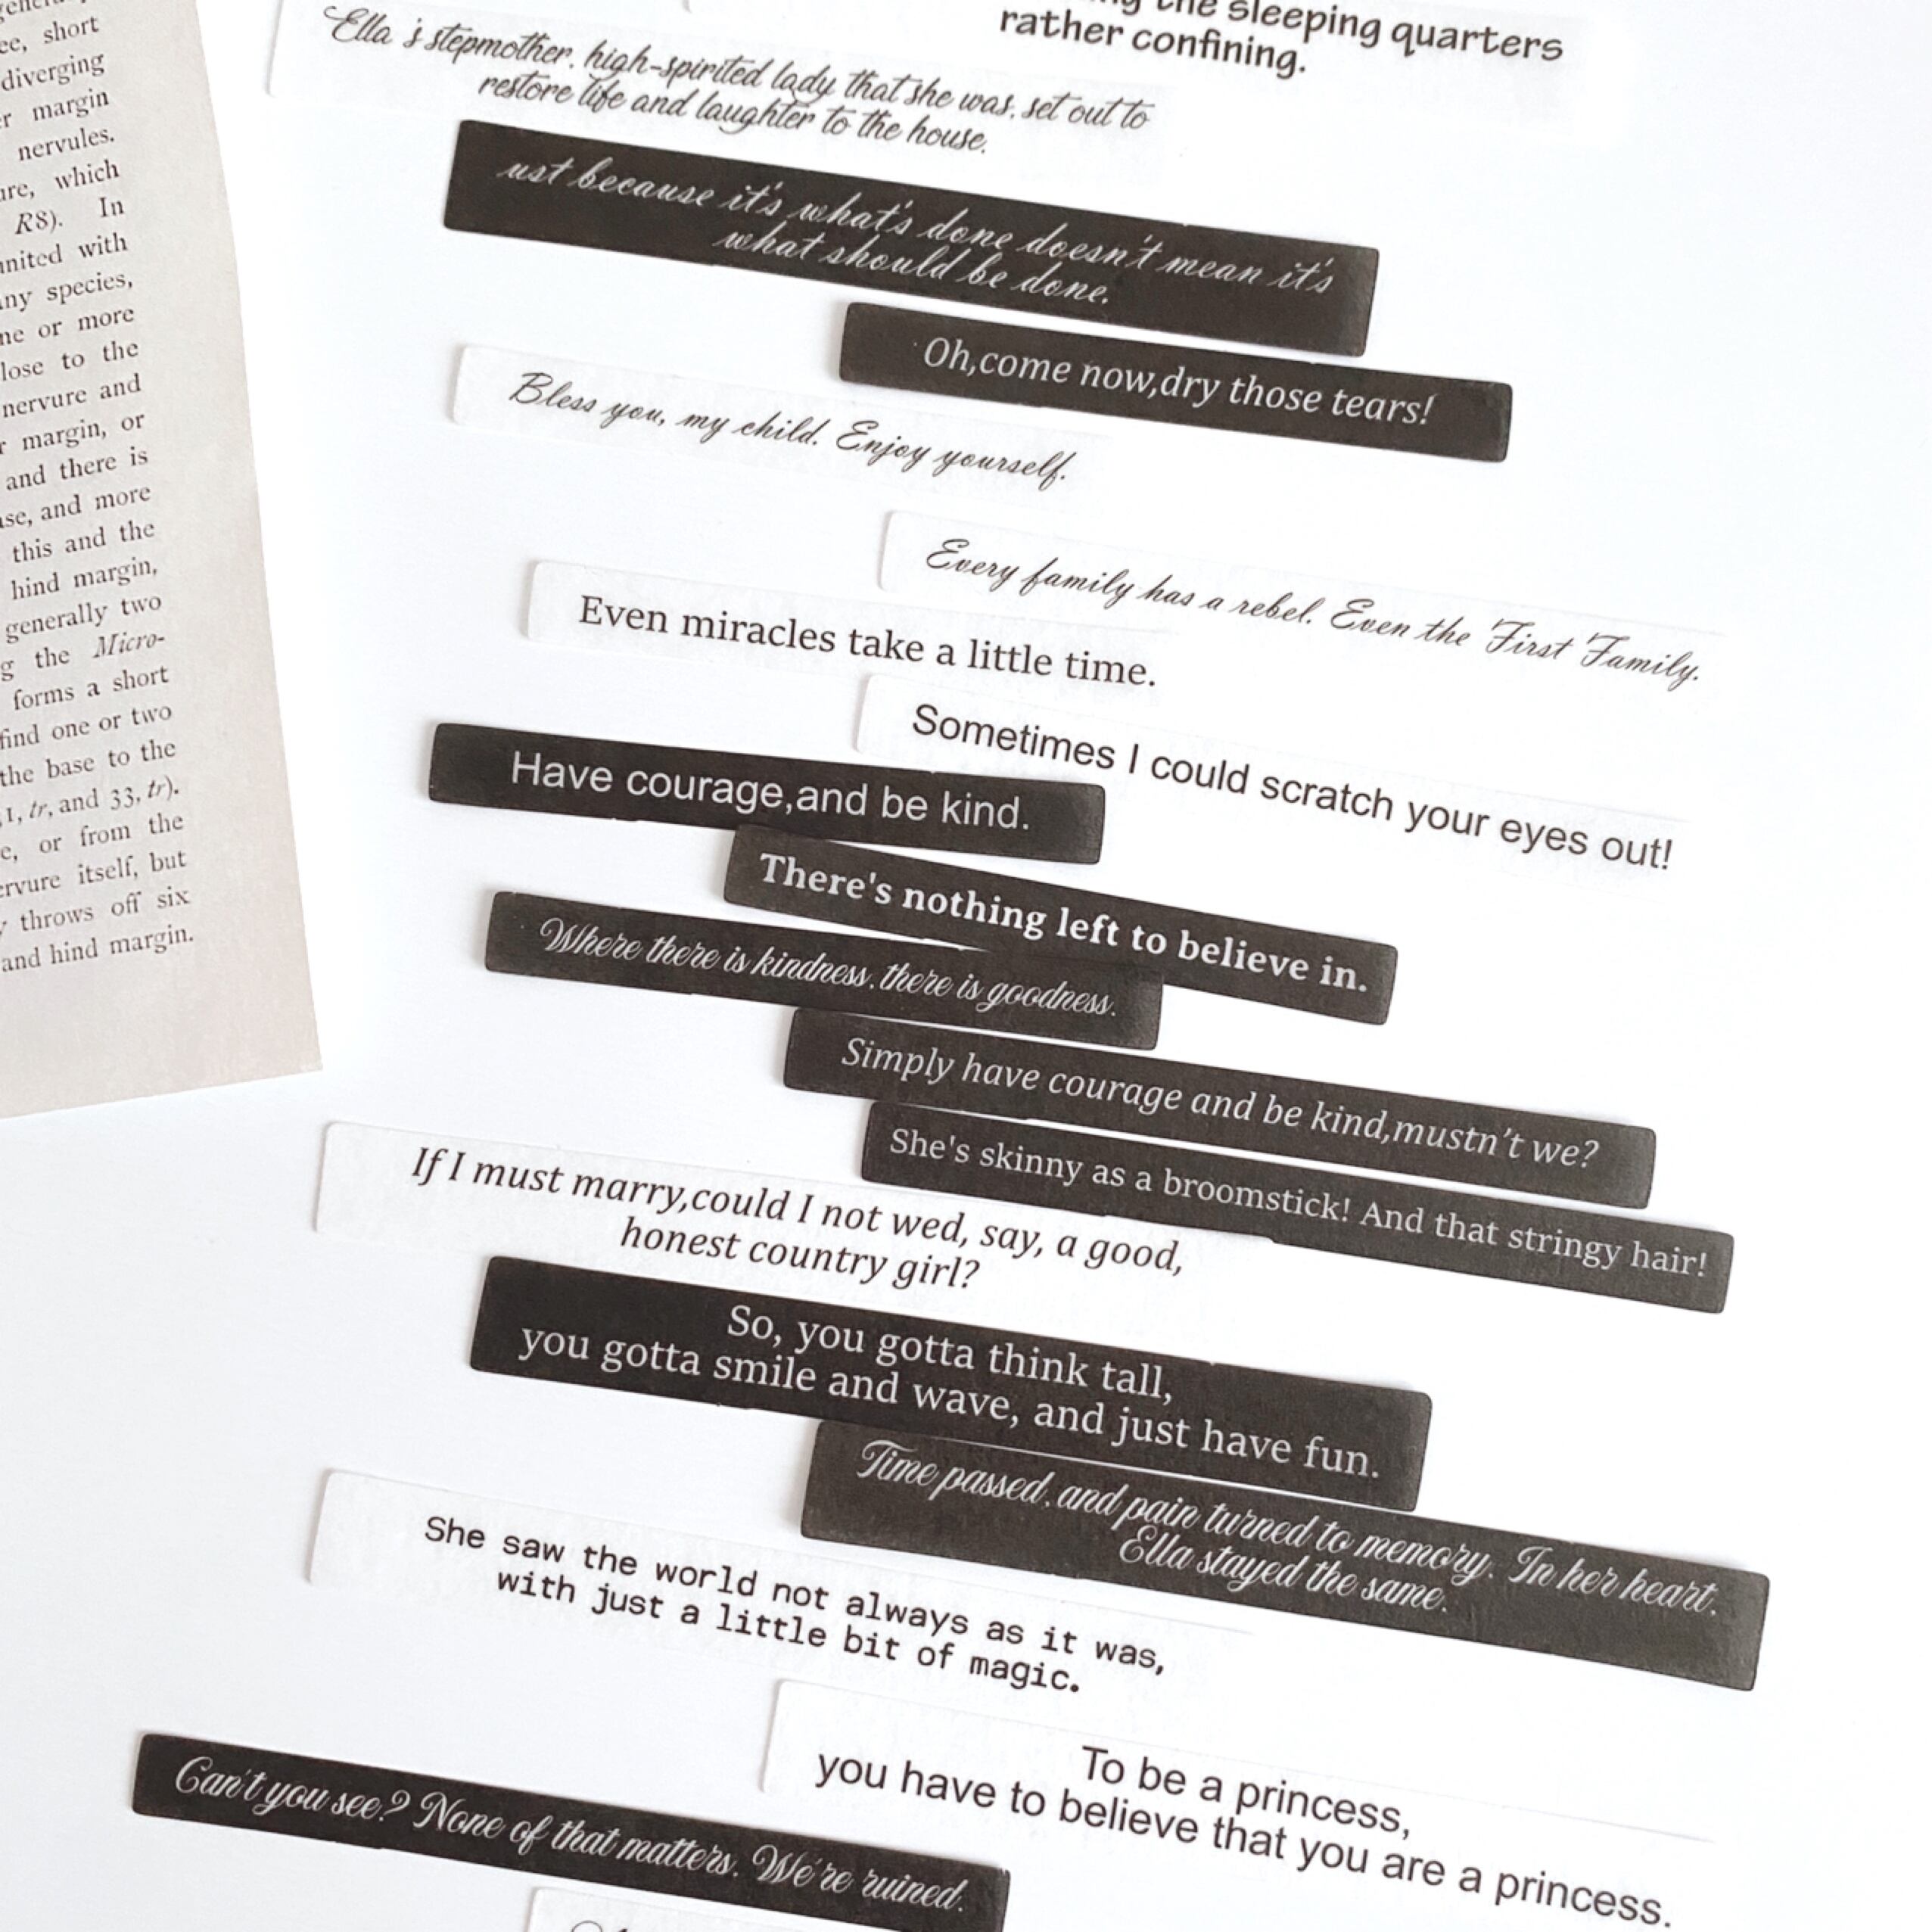 ee, short
diverging
margin
nervules.
which
R8). In
with
species,
or more
to the
nervure and
margin, or
and there is
and more
this and the
hind margin,
generally two
the Micro-
forms a short
find one or two
the base to the
tr, and 33, tr).
or from the
itself, but
throws off six
and hind margin.
the sleeping quarters
rather confining.
Ella 's stepmother, high-spirited lady that she was, set out to
restore life and laughter to the house.
ust because it's what's done doesn't mean it's
what should be done.
Oh,come now,dry those tears!
Bless you, my child. Enjoy yourself.
Every family has a rebel. Even the First Family.
Even miracles take a little time.
Sometimes I could scratch your eyes out!
Have courage,and be kind.
There's nothing left to believe in.
Where there is kindness, there is goodness.
Simply have courage and be kind,mustn't we?
She's skinny as a broomstick! And that stringy hair!
If I must marry,could I not wed, say, a good,
honest country girl?
So, you gotta think tall,
you gotta smile and wave, and just have fun.
Time passed, and pain turned to memory. In her heart,
Ella stayed the same.
She saw the world not always as it was,
with just a little bit of magic.
To be a princess,
you have to believe that you are a princess.
Can't you see? None of that matters. We're ruined.